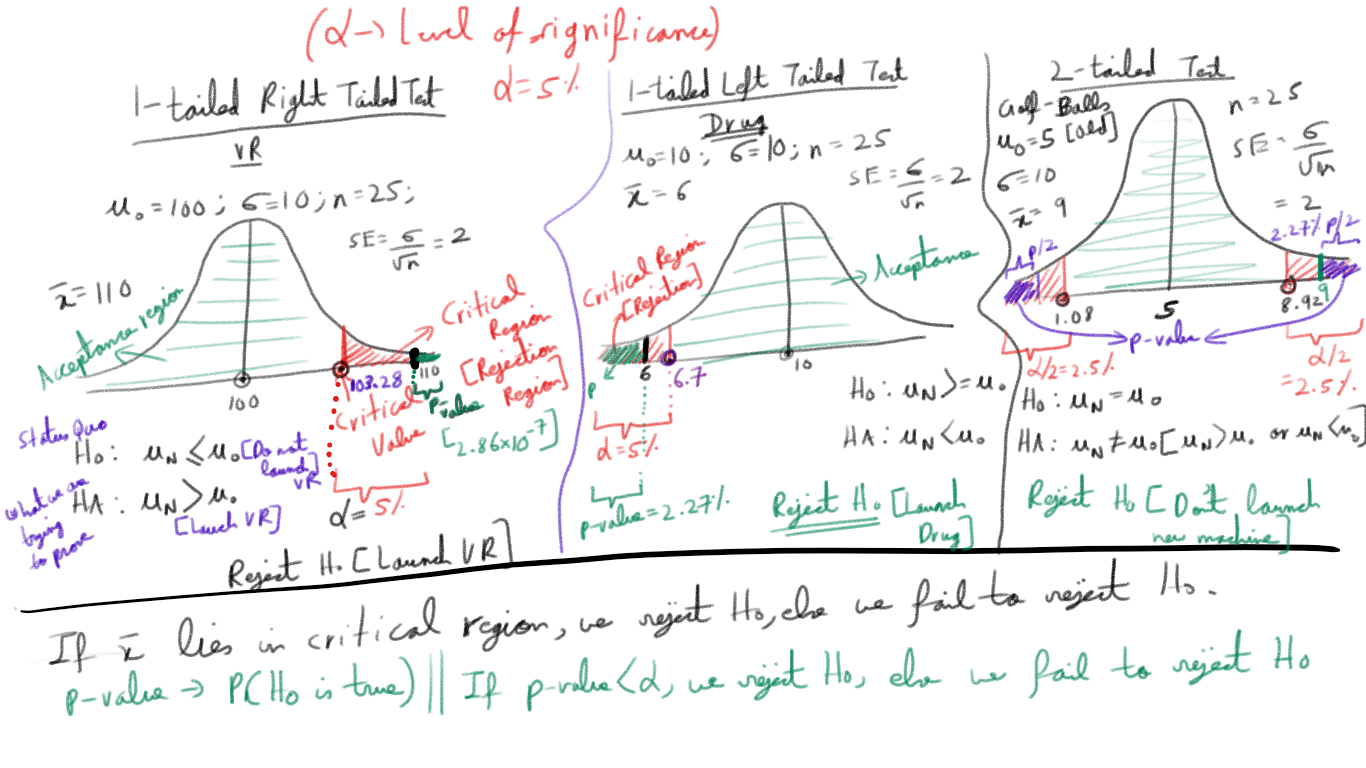 (α → Level of significance)
α = 5%
1-tailed Right Tailed Test
VR
μ₀ = 100 ; σ = 10 ; n = 25;
SE = σ/√n = 2
x̄ = 110
Acceptance region
Critical
Region
[Rejection
Region]
100
103.28
110
Critical
Value
p-value
[2.86×10⁻⁷]
Status Quo
H₀ : μN ≤ μ₀ [Do not
launch]
VR
What we are
trying
to prove
HA : μN > μ₀
[Lauch VR]
α = 5%
Reject H₀ [Launch VR]
1-tailed Left Tailed Test
Drug
μ₀ = 10 ; σ = 10 ; n = 25
x̄ = 6
SE = σ/√n = 2
Critical Region
[Rejection]
Acceptance
P
6
6.7
10
α = 5%
H₀ : μN >= μ₀
HA : μN < μ₀
p-value = 2.27%
Reject H₀ [Launch
Drug]
2-tailed Test
Golf-Balls
μ₀ = 5 [old]
σ = 10
x̄ = 9
n = 25
SE = σ/√n
= 2
p/2
2.27% p/2
1.08
5
8.92
9
p-value
α/2 = 2.5%
α/2
= 2.5%
H₀ : μN = μ₀
HA : μN ≠ μ₀ [μN > μ₀ or μN < μ₀]
Reject H₀ [Don't launch
new machine]
If x̄ lies in critical region, we reject H₀, else we fail to reject H₀.
p-value → P(H₀ is true) || If p-value < α, we reject H₀, else we fail to reject H₀